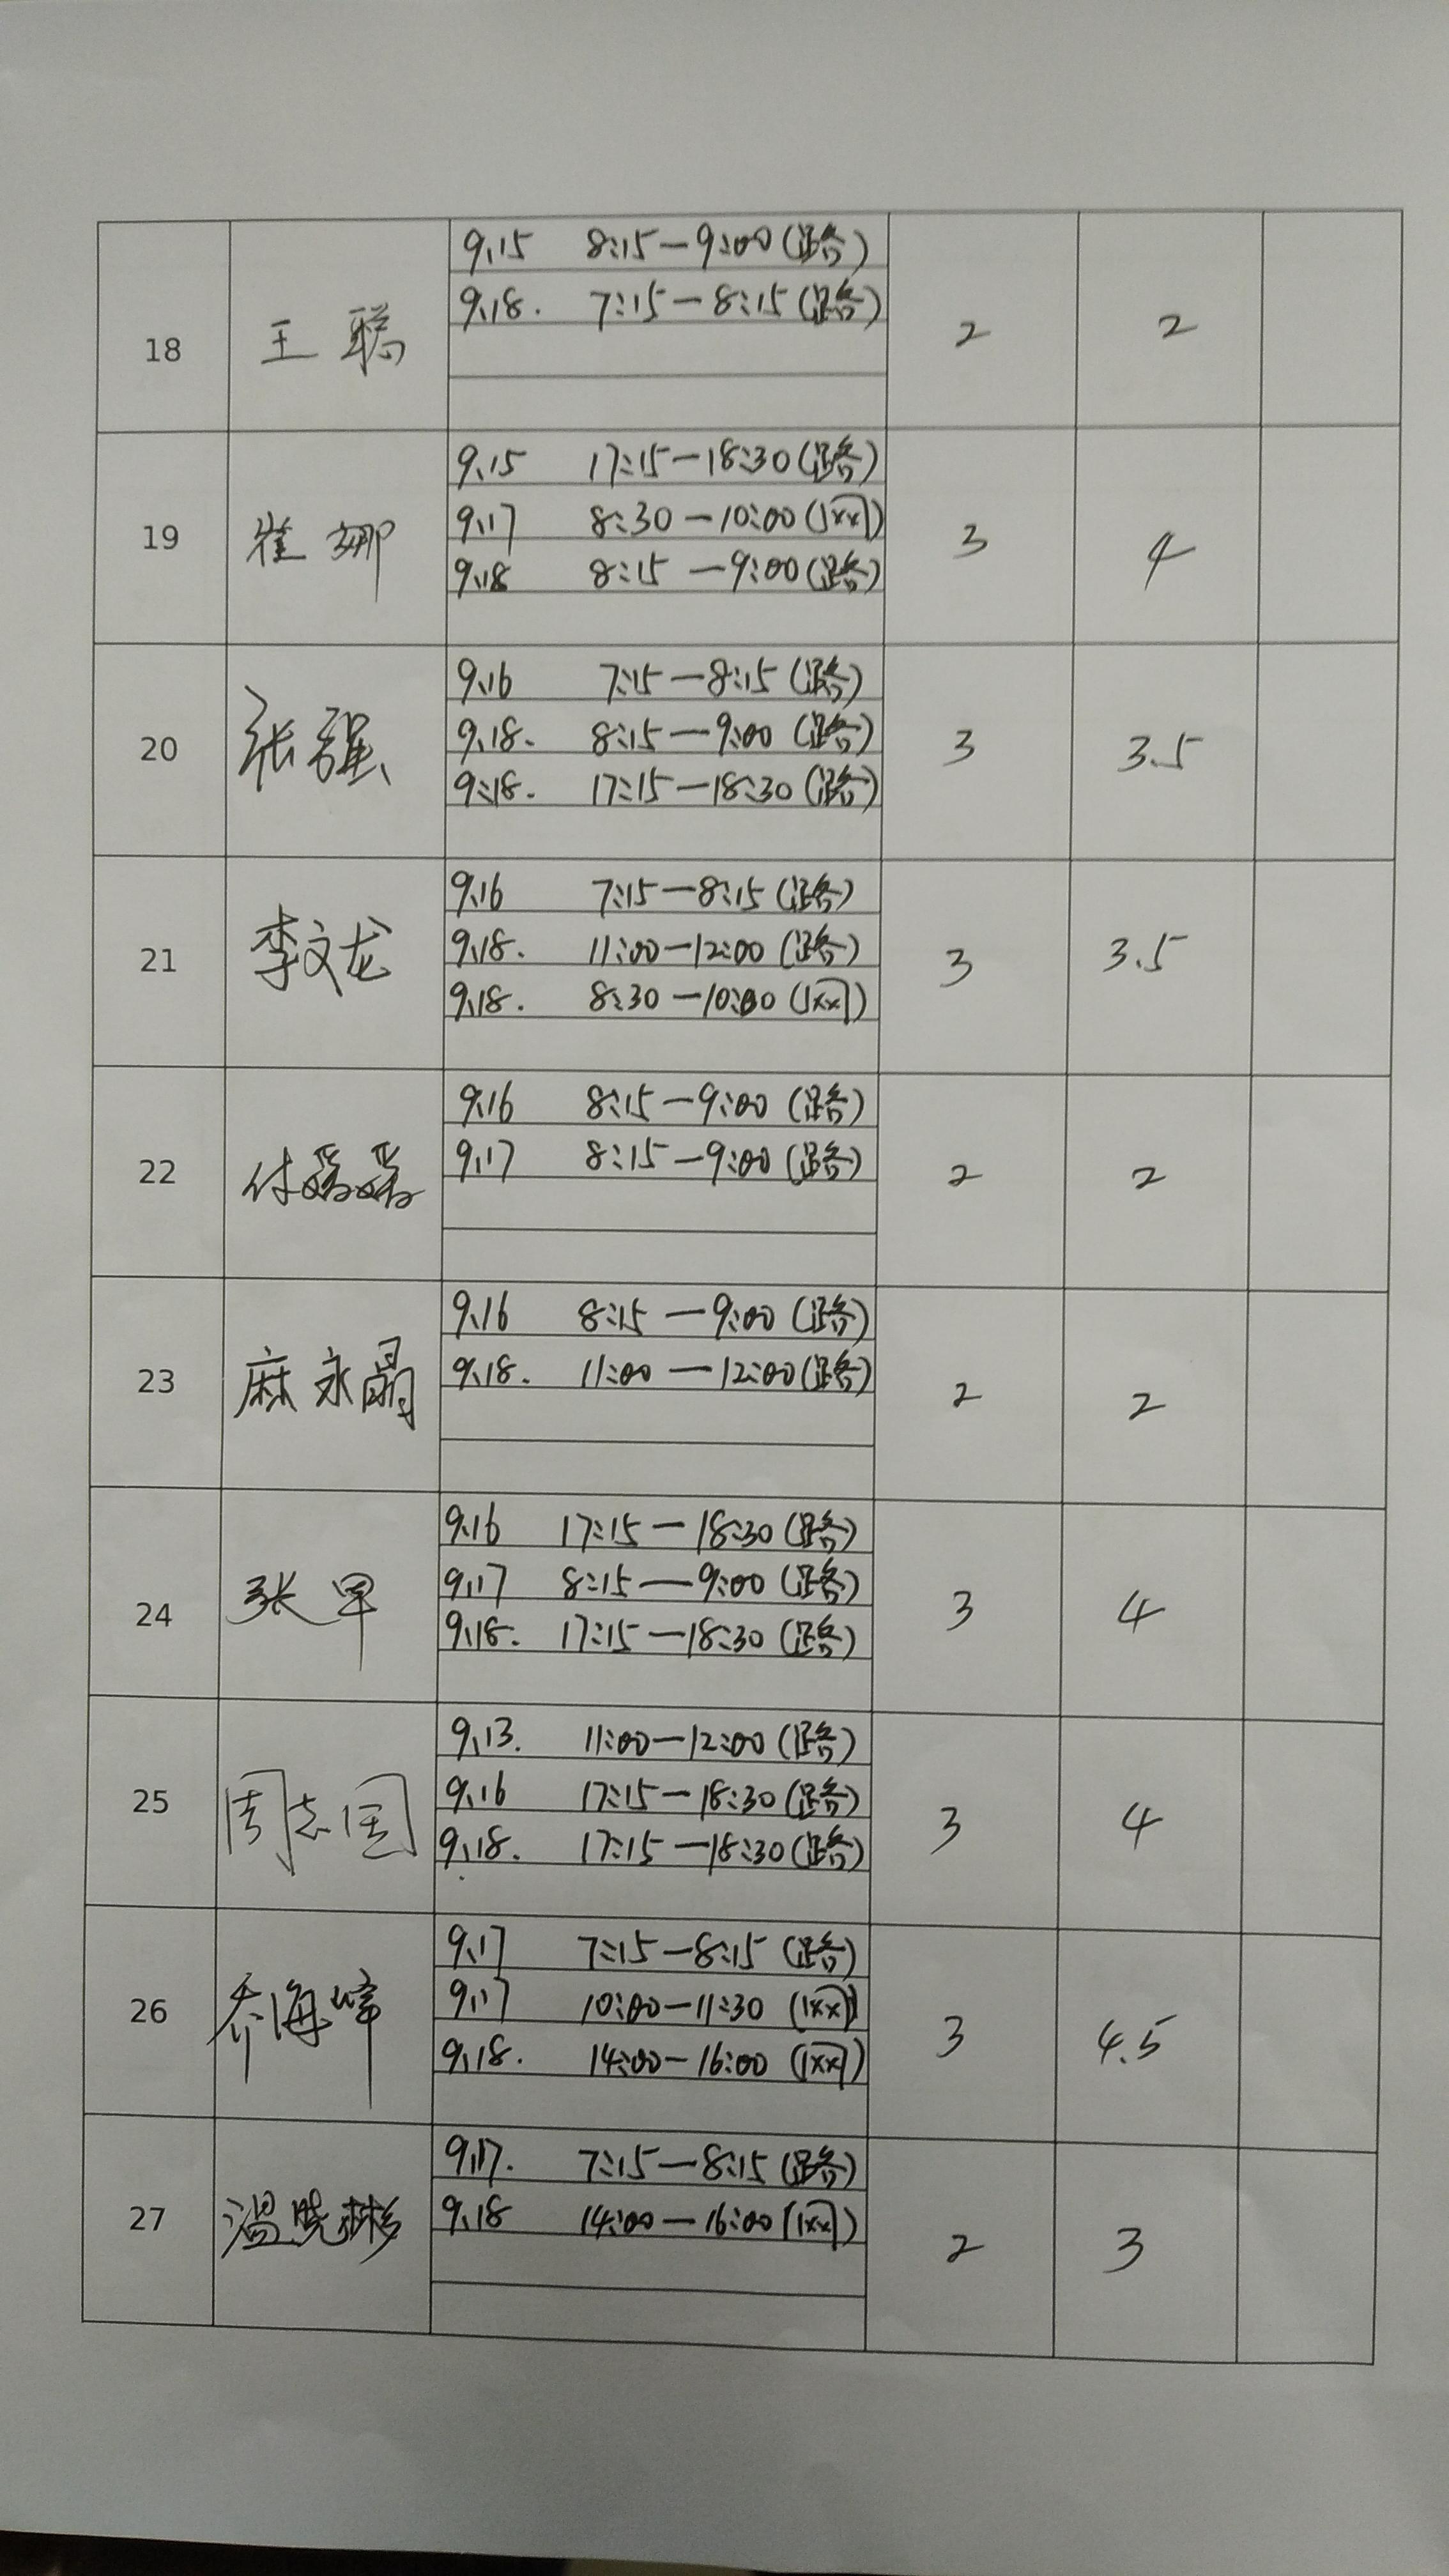 9.15 8:15—9:00(路)
9.18. 7:15—8:15(路)
18 王聪 2 2
9.15 17:15—18:30(路)
9.17 8:30—10:00(网)
9.18 8:15—9:00(路)
19 崔娜 3 4
9.16 7:15—8:15(路)
9.18. 8:15—9:00(路)
9.18. 17:15—18:30(路)
20 张强 3 3.5
9.16 7:15—8:15(路)
9.18. 11:00—12:00(路)
9.18. 8:30—10:00(网)
21 李文龙 3 3.5
9.16 8:15—9:00(路)
9.17 8:15—9:00(路)
22 付 2 2
9.16 8:15—9:00(路)
9.18. 11:00—12:00(路)
23 麻永晶 2 2
9.16 17:15—18:30(路)
9.17 8:15—9:00(路)
9.18. 17:15—18:30(路)
24 张早 3 4
9.13. 11:00—12:00(路)
9.16 17:15—18:30(路)
9.18. 17:15—18:30(路)
25 周志国 3 4
9.17 7:15—8:15(路)
9.17 10:00—11:30(网)
9.18. 14:00—16:00(网)
26 乔海峰 3 4.5
9.17. 7:15—8:15(路)
9.18 14:00—16:00(网)
27 温晓彬 2 3